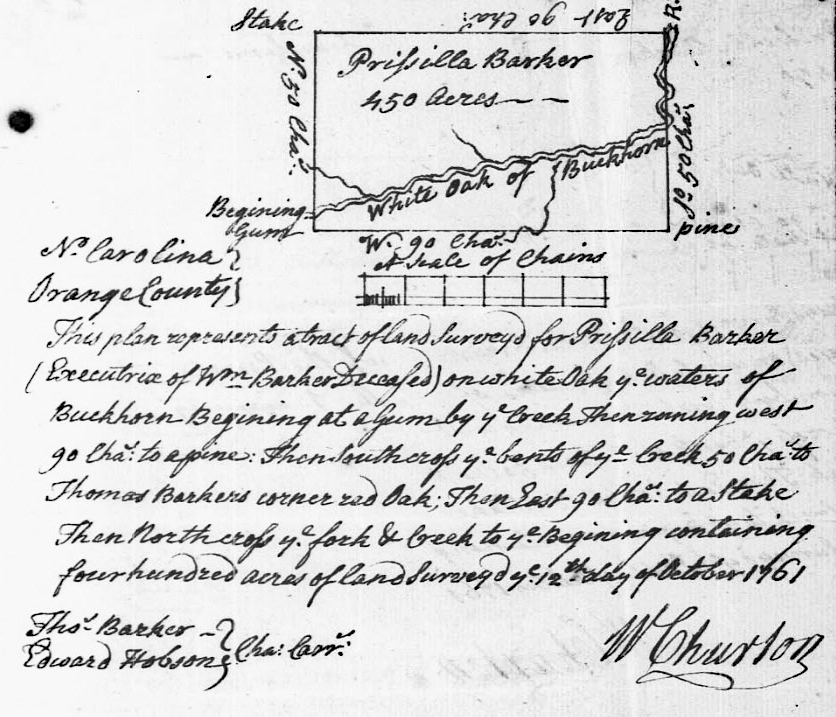 Stake
East 90 Cha:
N: 50 Cha:
Prissilla Barker
450 Acres
White Oak of Buckhorn
So 50 Cha:
Begining
Gum
pine
W: 90 Cha:
A Scale of Chains
No. Carolina
Orange County
This plan represents a tract of land Surveyd for Prissilla Barker
(Executrix of Wm Barker Deceased) on white Oak ye waters of
Buckhorn Begining at a Gum by ye Creek Then runing west
90 Cha: to a pine: Then South cross ye bents of ye Creek 50 Cha: to
Thomas Barkers corner red Oak; Then East 90 Cha: to a Stake
Then North cross ye fork & Creek to ye Begining containing
four hundred acres of land Surveyd ye 12th day of October 1761
Thos. Barker
Edward Hobson
Cha: Carrs.
W Churton